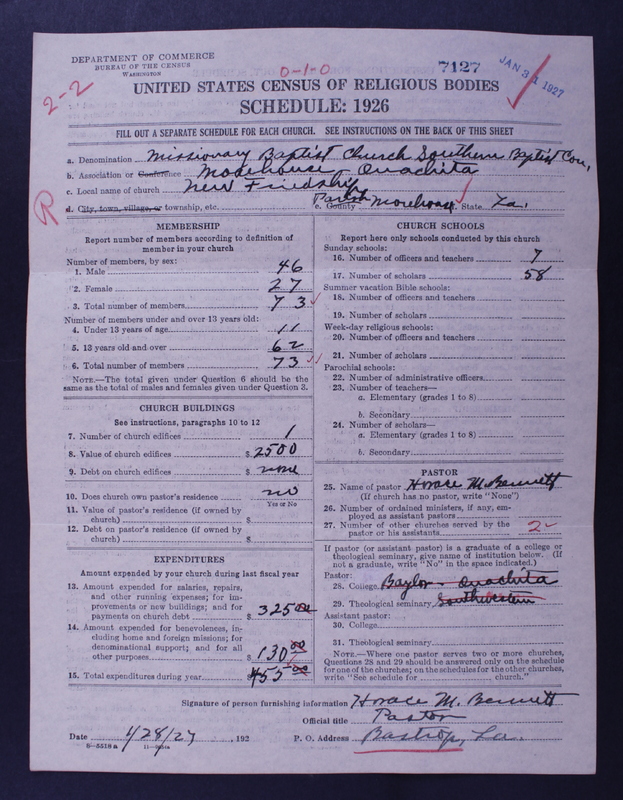 DEPARTMENT OF COMMERCE
BUREAU OF THE CENSUS
WASHINGTON
2-2
0-1-0
7127
JAN 31 1927
UNITED STATES CENSUS OF RELIGIOUS BODIES
SCHEDULE: 1926
FILL OUT A SEPARATE SCHEDULE FOR EACH CHURCH. SEE INSTRUCTIONS ON THE BACK OF THIS SHEET
a. Denomination Missionary Baptist Church Southern Baptist Con.
b. Association or Conference Morehouse, Ouachita
c. Local name of church New Friendship
R
d. City, town, village, or township, etc. e. County Parish Morehouse State La.
MEMBERSHIP
Report number of members according to definition of
member in your church
Number of members, by sex:
1. Male 46
2. Female 27
3. Total number of members 73
Number of members under and over 13 years old:
4. Under 13 years of age 11
5. 13 years old and over 62
6. Total number of members 73
NOTE.—The total given under Question 6 should be the
same as the total of males and females given under Question 3.
CHURCH BUILDINGS
See instructions, paragraphs 10 to 12
7. Number of church edifices 1
8. Value of church edifices $ 2500
9. Debt on church edifices $ none
10. Does church own pastor's residence no
Yes or No
11. Value of pastor's residence (if owned by
church) $
12. Debt on pastor's residence (if owned by
church) $
EXPENDITURES
Amount expended by your church during last fiscal year
13. Amount expended for salaries, repairs,
and other running expenses; for im-
provements or new buildings; and for
payments on church debt $ 325 00
14. Amount expended for benevolences, in-
cluding home and foreign missions; for
denominational support; and for all
other purposes $ 130 00
15. Total expenditures during year $ 455 00
CHURCH SCHOOLS
Report here only schools conducted by this church
Sunday schools:
16. Number of officers and teachers 7
17. Number of scholars 58
Summer vacation Bible schools:
18. Number of officers and teachers
19. Number of scholars
Week-day religious schools:
20. Number of officers and teachers
21. Number of scholars
Parochial schools:
22. Number of administrative officers
23. Number of teachers—
a. Elementary (grades 1 to 8)
b. Secondary
24. Number of scholars—
a. Elementary (grades 1 to 8)
b. Secondary
PASTOR
25. Name of pastor Horace M. Bennett
(If church has no pastor, write "None")
26. Number of ordained ministers, if any, em-
ployed as assistant pastors
27. Number of other churches served by the
pastor or his assistants 2
If pastor (or assistant pastor) is a graduate of a college or
theological seminary, give name of institution below. (If
not a graduate, write "No" in the space indicated.)
Pastor:
28. College Baylor - Ouachita
29. Theological seminary Southwestern
Assistant pastor:
30. College
31. Theological seminary
NOTE.—Where one pastor serves two or more churches,
Questions 28 and 29 should be answered only on the schedule
for one of the churches; on the schedules for the other churches,
write "See schedule for church."
Signature of person furnishing information Horace M. Bennett
Official title Pastor
Date 1/28/27, 192 P. O. Address Bastrop, La.
8—5518 a